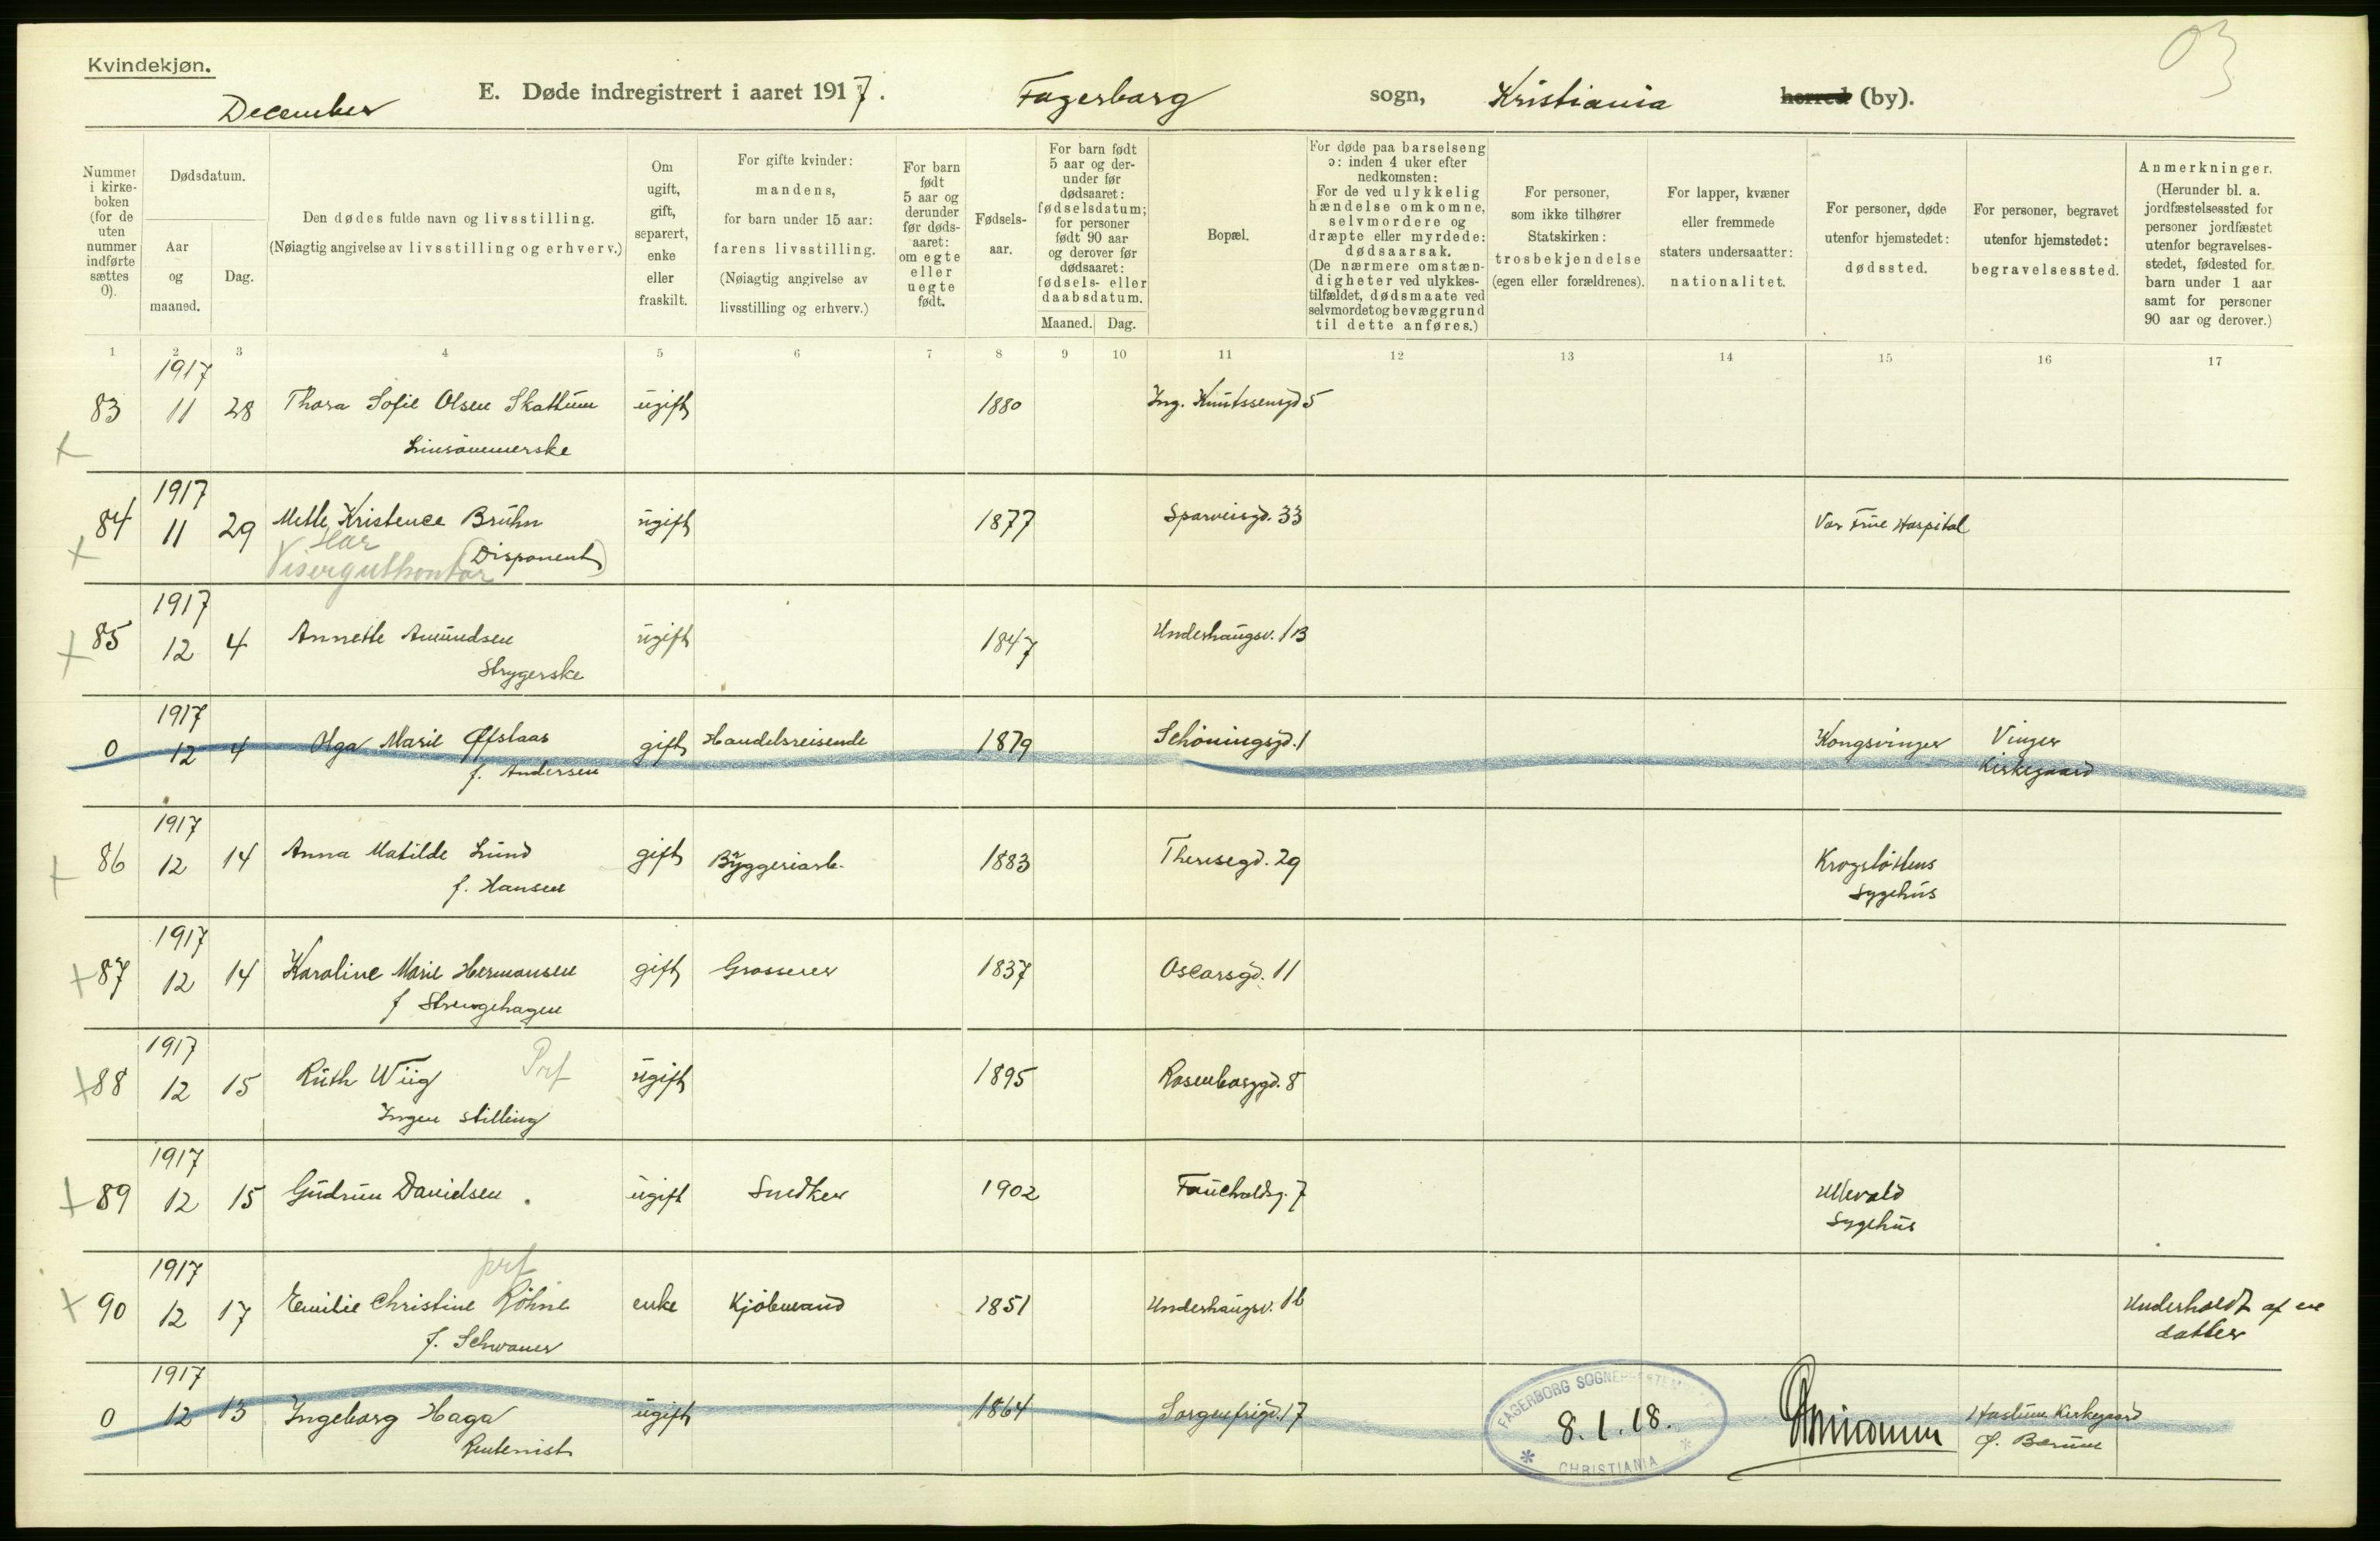 Kvindekjøn.
03
December E. Døde indregistrert i aaret 1917. Fagerborg sogn, Kristiania herred (by).
Nummer i kirkeboken (for de uten nummer indførte sættes 0).
Dødsdatum.
Aar og maaned.
Dag.
Den dødes fulde navn og livsstilling.
(Nøiagtig angivelse av livsstilling og erhverv.)
Om ugift, gift, separert, enke eller fraskilt.
For gifte kvinder: mandens, for barn under 15 aar: farens livsstilling. (Nøiagtig angivelse av livsstilling og erhverv.)
For barn født 5 aar og derunder før dødsaaret: om egte eller uegte født.
Fødselsaar.
For barn født 5 aar og derunder før dødsaaret: fødselsdatum; for personer født 90 aar og derover før dødsaaret: fødsels- eller daabsdatum.
Maaned. Dag.
Bopæl.
For døde paa barselseng ɔ: inden 4 uker efter nedkomsten: For de ved ulykkelig hændelse omkomne, selvmordere og dræpte eller myrdede: dødsaarsak. (De nærmere omstændigheter ved ulykkestilfældet, dødsmaate ved selvmordet og bevæggrund til dette anføres.)
For personer, som ikke tilhører Statskirken: trosbekjendelse (egen eller forældrenes).
For lapper, kvæner eller fremmede staters undersaatter: nationalitet.
For personer, døde utenfor hjemstedet: dødssted.
For personer, begravet utenfor hjemstedet: begravelsessted.
Anmerkninger. (Herunder bl. a. jordfæstelsessted for personer jordfæstet utenfor begravelsesstedet, fødested for barn under 1 aar samt for personer 90 aar og derover.)
1 2 3 4 5 6 7 8 9 10 11 12 13 14 15 16 17
1917
83 11 28 Thora Sofie Olsen Skattum ugift 1880 Ing. Knutssensgd 5
Linsömmerske
1917
84 11 29 Mette Kristence Bruhn ugift 1877 Sparveisgd. 33 Vor Frue Hospital
Har
Visergutkontor (Disponent)
1917
85 12 4 Annette Amundsen ugift 1847 Underhaugsv. 1B
Strygerske
1917
0 12 4 Olga Marie Offstaas gift Handelsreisende 1879 Schöningsgd. 1 Kongsvinger Vinger
f. Andersen Kirkegaard
1917
86 12 14 Anna Matilde Lund gift Bryggeriarb. 1883 Theresegd. 29 Krogstöttens
f. Hansen Sygehus
1917
87 12 14 Karoline Marie Hermansen gift Grosserer 1837 Oscarsgd. 11
f Strengehagen
1917
88 12 15 Ruth Wiig Prf ugift 1895 Rosenborggd. 8
Ingen stilling
1917
89 12 15 Gudrun Danielsen. ugift Snedker 1902 Fauchaldsg. 7 Ullevold
Sygehus
prf
1917
90 12 17 Emilie Christine Röhne enke Kjöbmand 1851 Underhaugsv. 1b Underholdt af en
f. Schwaner datter
1917
0 12 13 Ingeborg Haga ugift 1864 Sorgenfrigd. 17 Haslum Kirkegaard
Rentenist Ø. Bærum
FAGERBORG SOGNEPRESTEMBEDE
8.1.18.
CHRISTIANIA